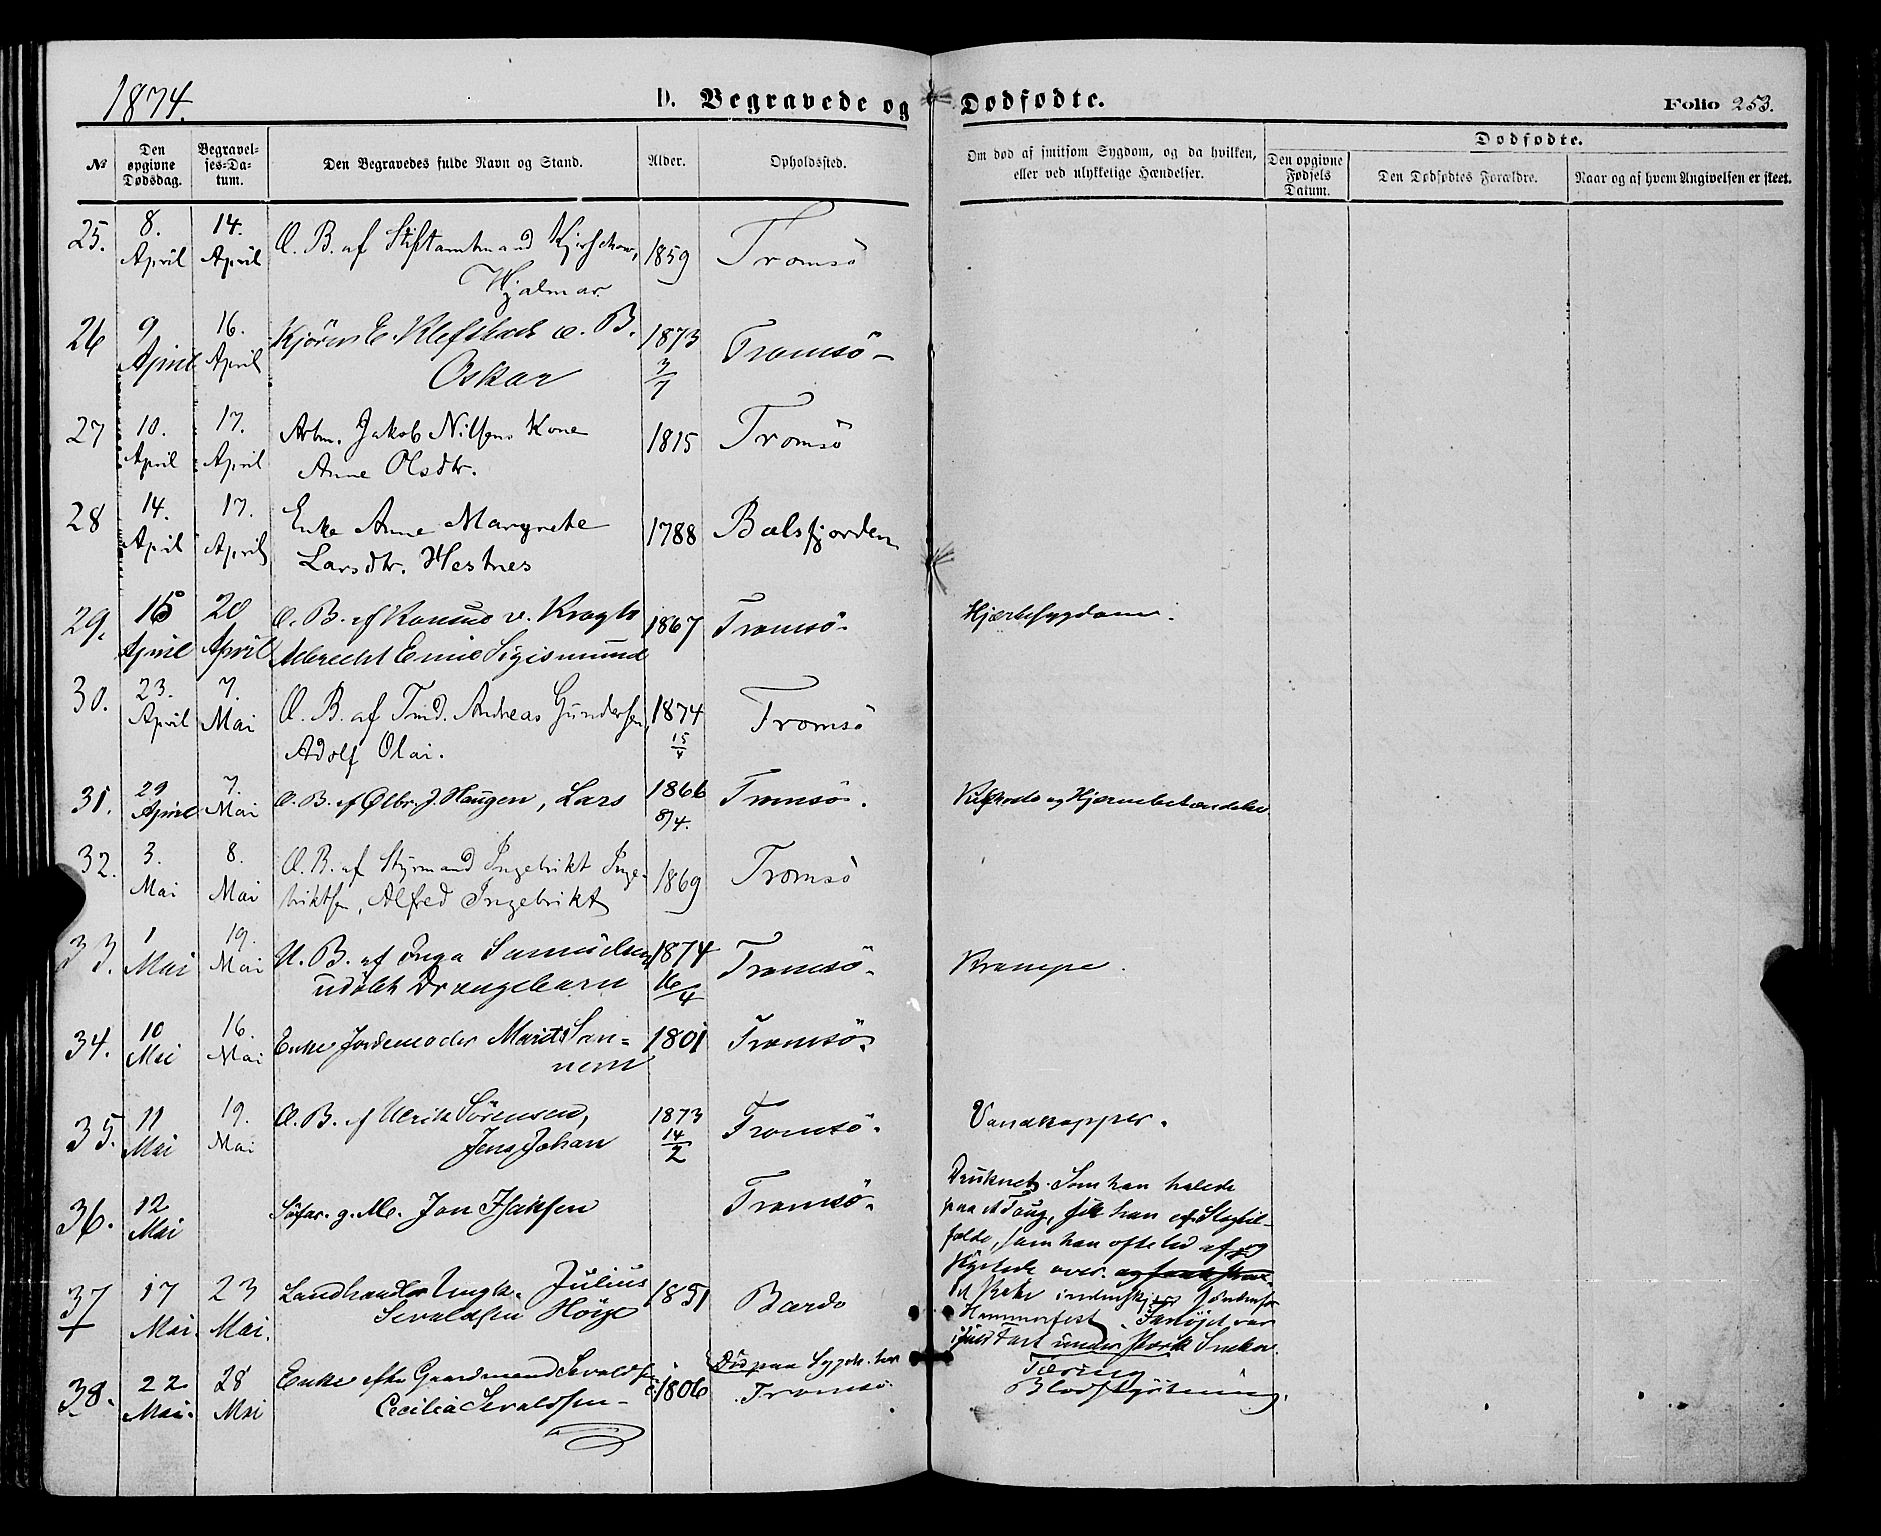 1874.
D. Begravede og Dødfødte.
Folio 253.
№
Den opgivne Dødsdag.
Begravelses-Datum.
Den Begravedes fulde Navn og Stand.
Alder.
Opholdssted.
Om død af smitsom Sygdom, og da hvilken, eller ved ulykkelige Hændelser.
Den opgivne Fødsels Datum.
Dødfødte.
Den Dødfødtes Forældre.
Naar og af hvem Angivelsen er skeet.
25. 8. April 14. April Æ. B. af Stiftamtmand Kjerschow, 1859 Tromsö
Hjalmar
26 9 April 16. April Kjörer E. Æ. B. 1873 Tromsö
Oskar 3/7
27 10. April 17. April Arbm. Jakob Nilsens Kone 1815 Tromsö
Anne Olsdtr.
28 14. April 17. April Enke Anne Margrete 1788 Balsfjorden
Larsdtr. Hestnes
29. 15 April 20 April Æ. B. af v. Krogh 1867 Tromsö. Hjertesygdom.
Albrecht Emil Sigismund
30. 23. April 7. Mai Æ. B. af Tmd. Andreas Gundersen, 1874 Tromsö
Adolf Olai. 15/4
31. 29 April 7. Mai Æ. B. af Ølbr. J. Haugen, Lars 1866 Tromsö. og Hjernebetændelse
8/4.
32. 3. Mai 8. Mai Æ. B. af Styrmand Ingebrikt Inge- 1869 Tromsö
briktsen, Alfred Ingebrikt
33. 1 Mai 19. Mai U. B. af Inga Samuelsen 1874 Tromsö. Krampe.
udöbt Drengebarn 16/4
34. 10 Mai 16. Mai Enke Jordemoder Marit San- 1801 Tromsö.
nem
35. 11 Mai 19. Mai Æ. B. af Ulrik Sörensen, 1873 Tromsö. Vandkopper.
Jens Johan 14/2
36. 12 Mai Söfar. g. M. Jon Isaksen Tromsö. Druknet. Som han halede
paa et Toug, fik han et Slagtil-
fælde, som han ofte led af og
styrtede over.
Hammerfest. Fartöjet var
i fuld Fart under stærk Snekov.
37 17 Mai. 23 Mai. Landhandler Ungk. Julius 1851 Bardo Tæring
Sevaldsen Höye
38. 22 Mai. 28 Mai Enke efter Gaardmand Sevaldsen 1806 Död paa Sygeh. her Tromsö Blodstyrtning.
Cecilia Sevaldsen